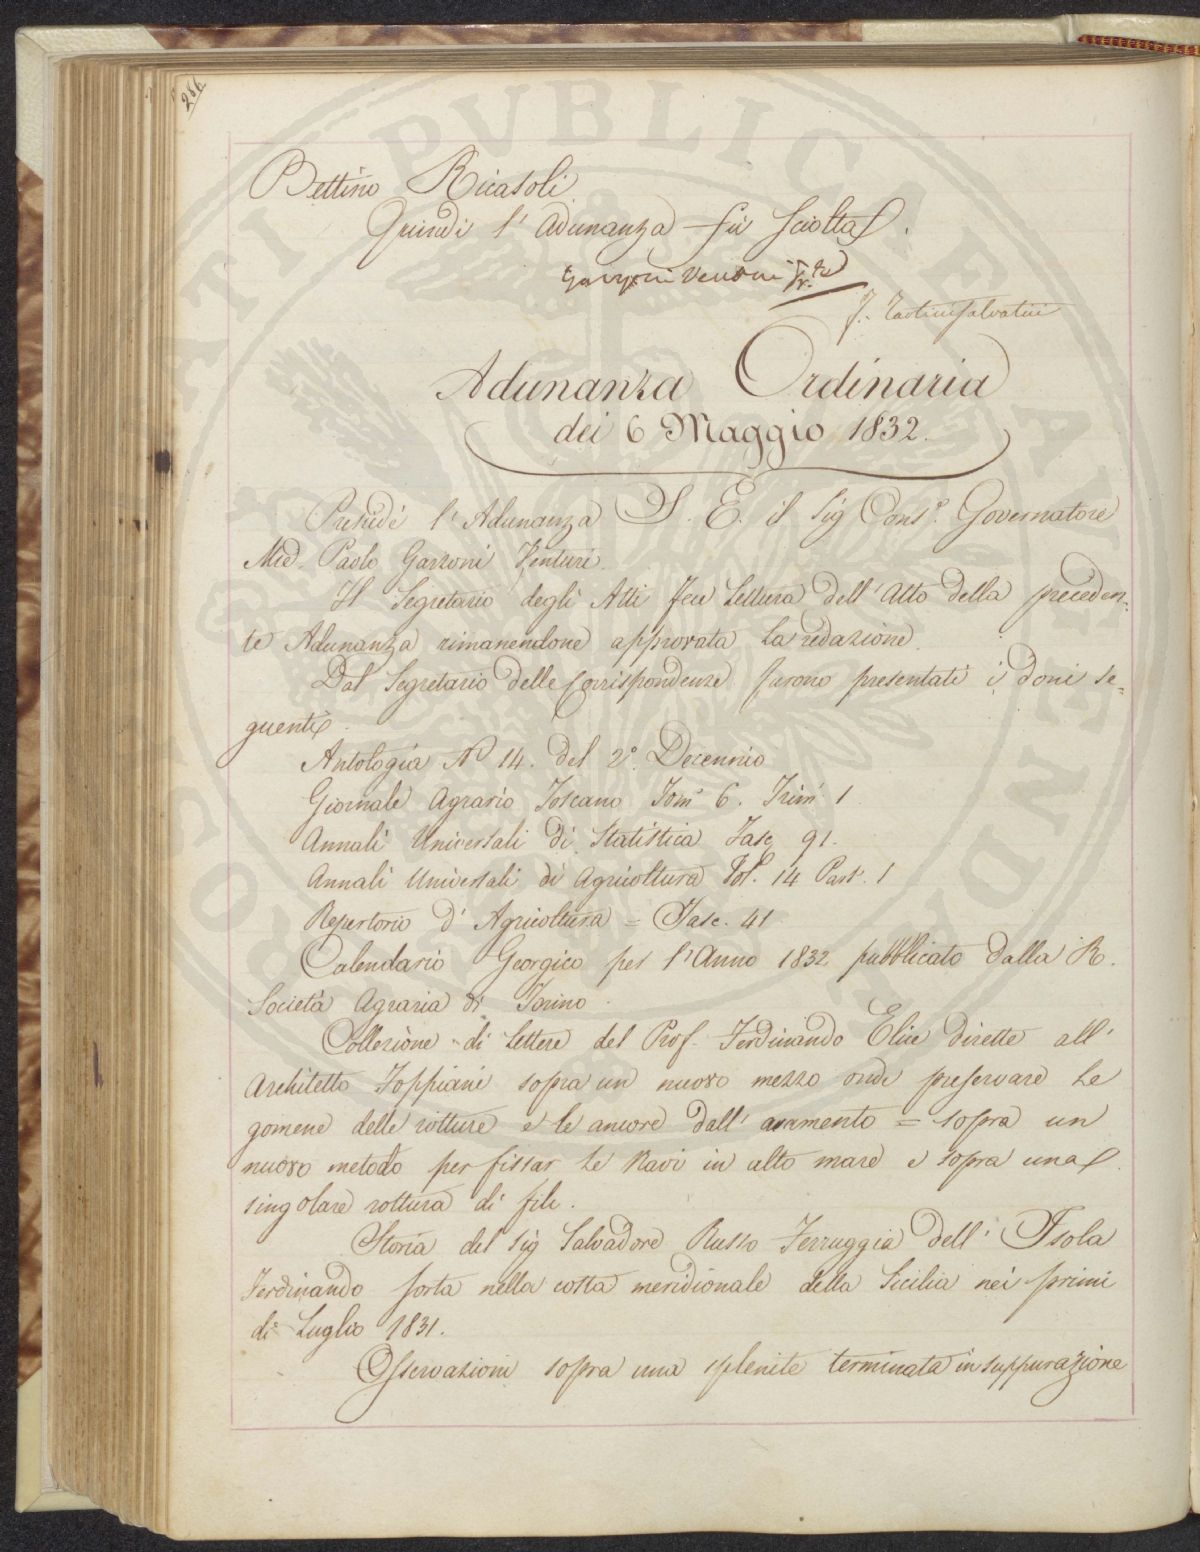 266
Bettino Ricasoli
Quindi l'Adunanza fù sciolta.
Garzoni Venturi Pr.te
F. Tartini Salvatici
Adunanza Ordinaria
dei 6 Maggio 1832.
Presiedè l'Adunanza S. E. il Sig Cons.e Governatore
Paolo Garzoni Venturi.
Il Segretario degli Atti fece Lettura dell'Atto della preceden=
te Adunanza rimanendone approvata la redazione.
Dal Segretario delle Corrispondenze furono presentati i doni se=
guenti
Antologia N.o 14. del 2.o Decennio
Giornale Agrario Toscano Tom 6. Trim 1
Annali Universali di Statistica Fasc 91.
Annali Universali di Agricoltura Vol. 14 Part. 1
Repertorio d'Agricoltura = Fasc. 41
Calendario Georgico per l'Anno 1832 pubblicato dalla R.
Società Agraria di Torino.
Collezione di Lettere del Prof. Ferdinando Elice dirette all'
Architetto Foppiani sopra un nuovo mezzo onde preservare Le
gomene delle rotture e le ancore dall' = sopra un
nuovo metodo per fissar Le Navi in alto mare e sopra una
singolare rottura di fili.
Storia del Sig Salvadore Russo Ferruggia dell'Isola
Ferdinando sorta nella costa meridionale della Sicilia nei primi
di Luglio 1831.
Osservazioni sopra una splenite terminata in suppurazione
PUBLICAE